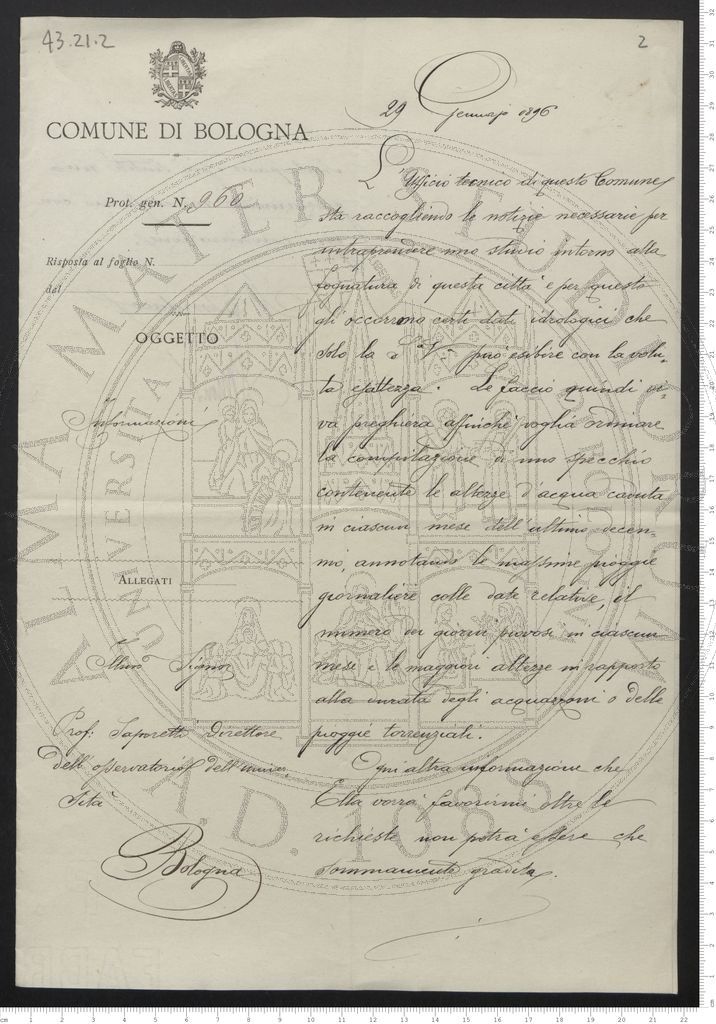 43.21.2
2
COMUNE DI BOLOGNA
29 Gennajo 1896
Prot. gen. N. 960
Risposta al foglio N.
del
OGGETTO
Informazioni
ALLEGATI
Illmo Signor
Prof: Saporetti Direttore
dell'osservatorio dell'univer.
sità
Bologna
L'Ufficio tecnico di questo Comune
sta raccogliendo le notizie necessarie per
intraprendere uno studio intorno alla
fognatura di questa città e per questo
gli occorrono certi dati idrologici che
solo la S. V. può esibire con la volu-
ta esattezza. Le faccio quindi vi-
va preghiera affinchè voglia ordinare
la compilazione di uno specchio
contenente le altezze d'acqua caduta
in ciascun mese dell'ultimo decen-
nio, annotando le massime pioggie
giornaliere colle date relative, il
numero dei giorni piovosi in ciascun
mese e le maggiori altezze in rapporto
alla durata degli acquazzoni o delle
pioggie torrenziali.
Ogni altra informazione che
Ella vorrà favorirmi oltre le
richieste non potrà essere che
sommamente gradita.
ALMA MATER STUDIORUM
UNIVERSITÀ
BOLOGNA
A.D. 1088